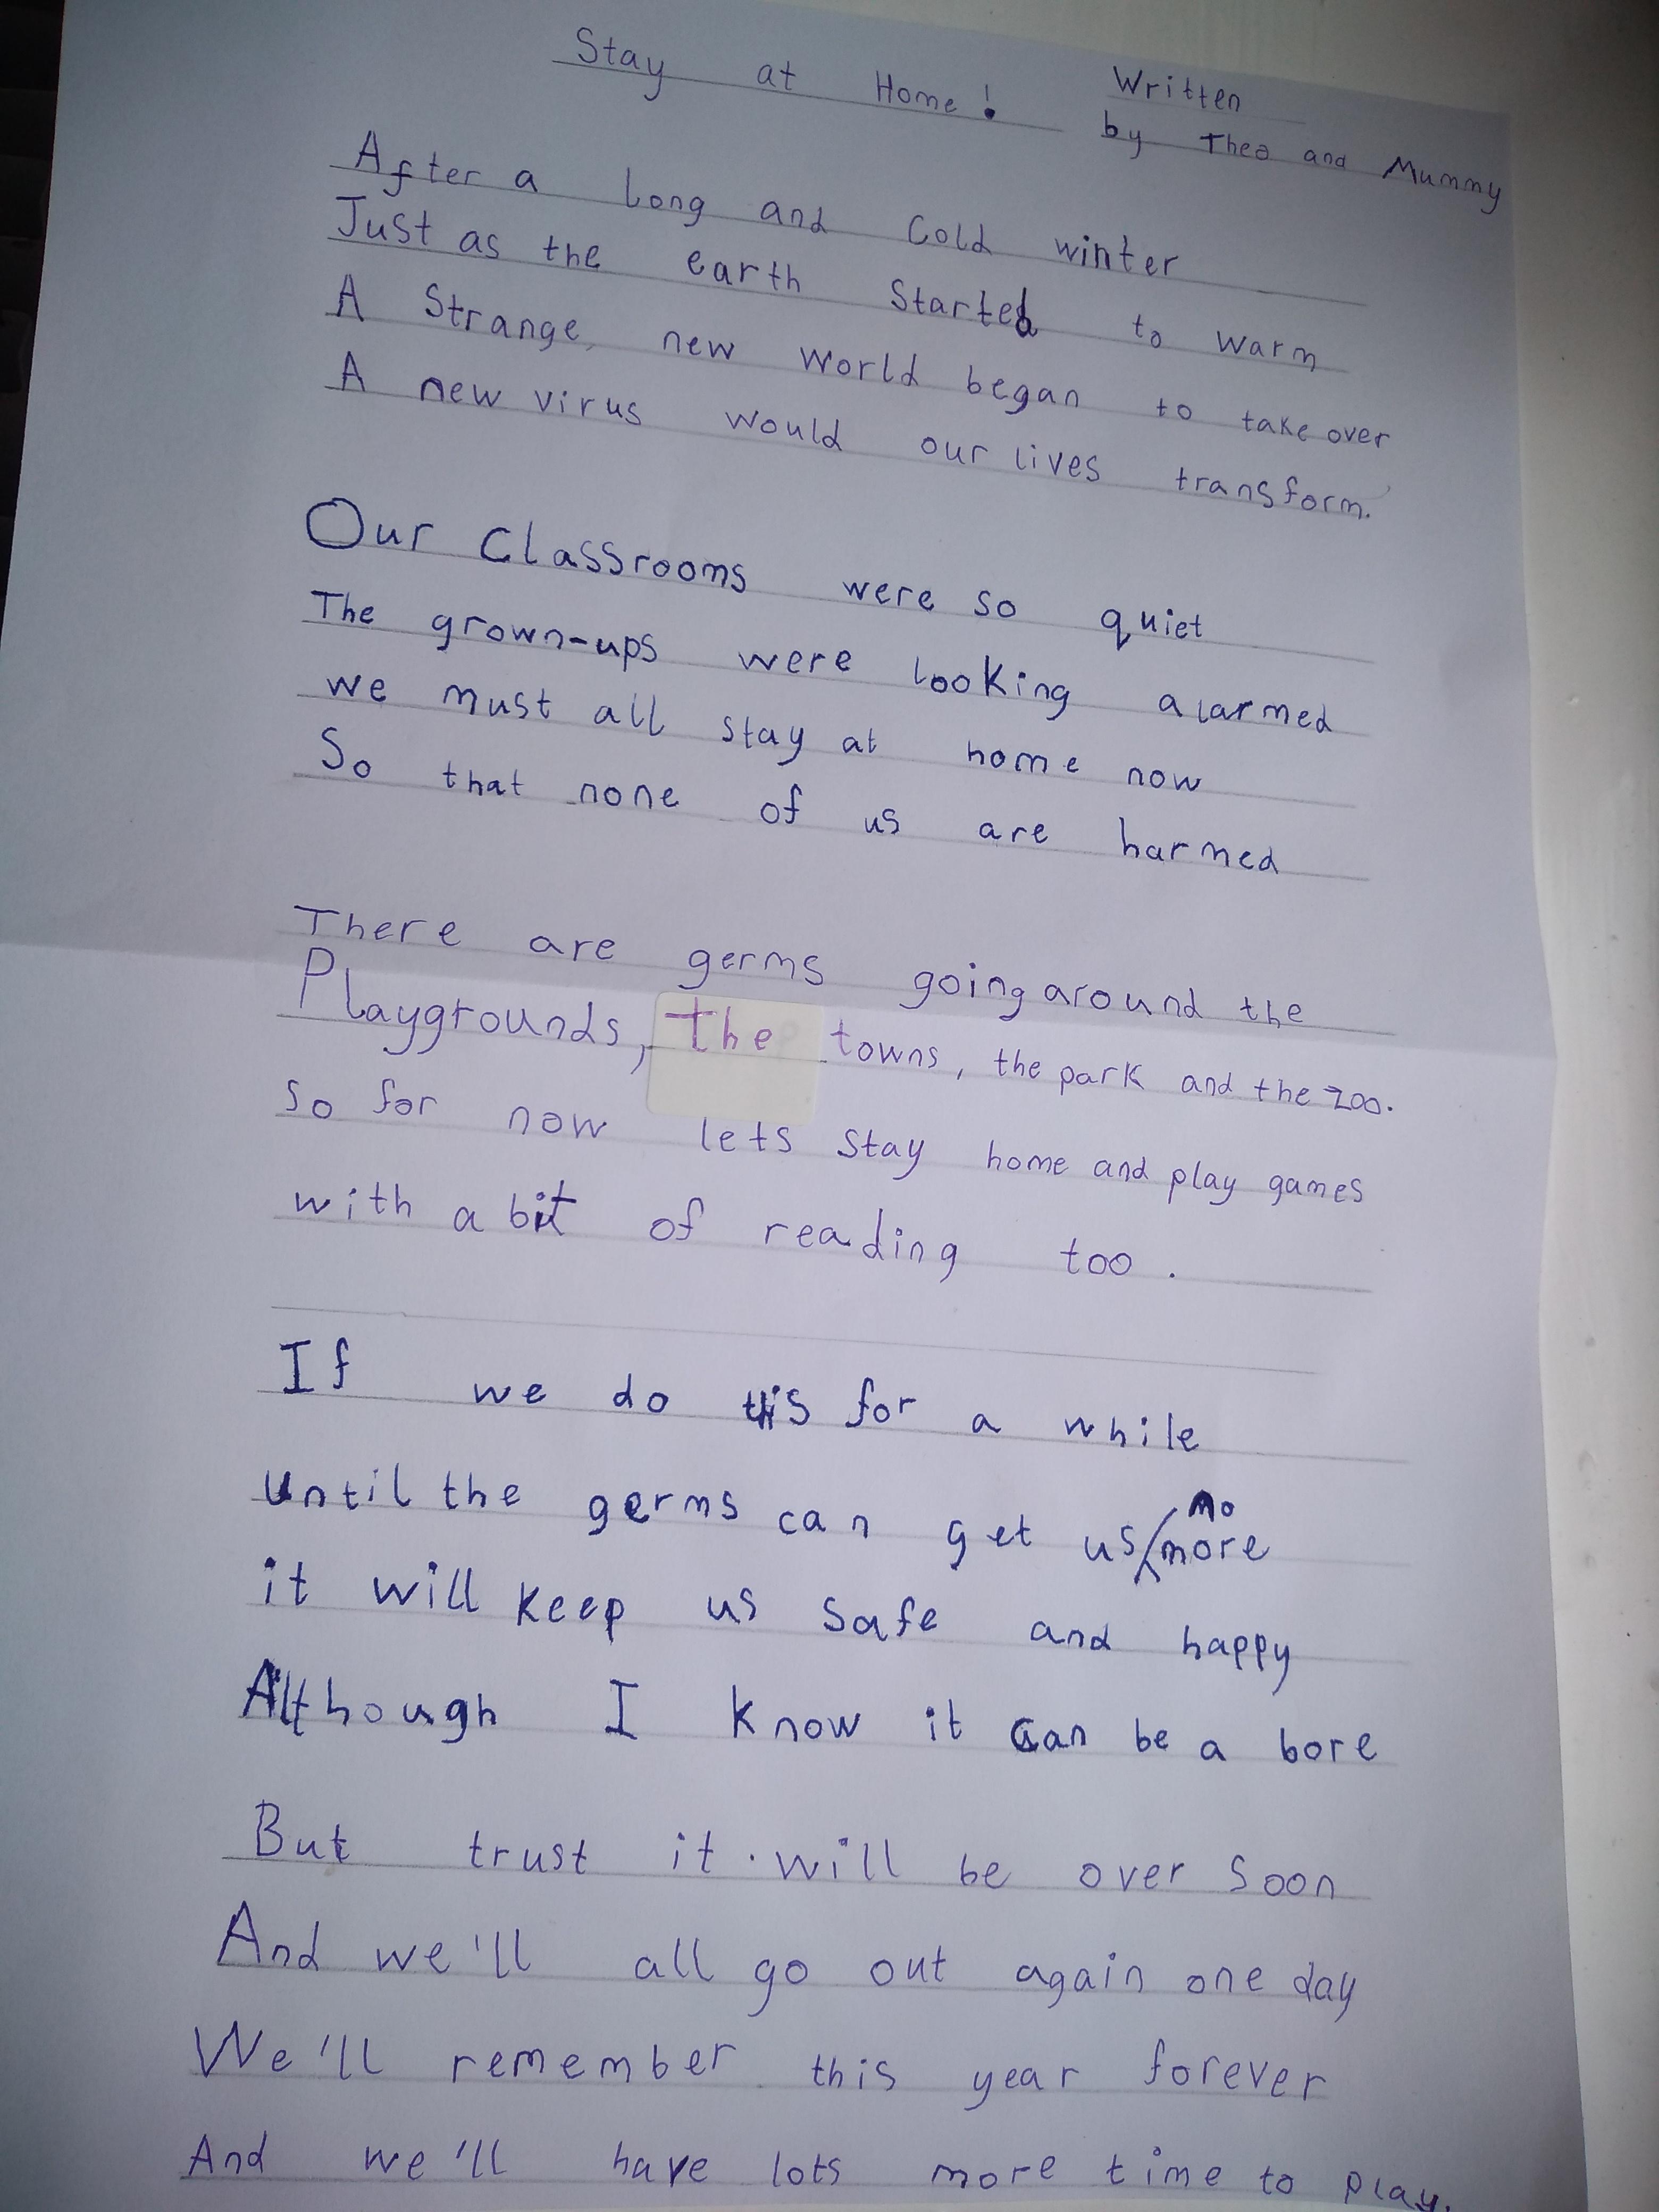 Stay at Home!
Written
by Theo and Mummy
After a long and Cold winter
Just as the earth Started to warm
A Strange, new world began to take over
A new virus would our lives transform.
Our Classrooms were so quiet
The grown-ups were looking alarmed
we must all stay at home now
So that none of us are harmed
There are germs going around the
Playgrounds, the towns, the park and the zoo.
So for now lets stay home and play games
with a bit of reading too.
If we do this for a while
until the germs can get us no more
it will keep us safe and happy
Although I know it can be a bore
But trust it will be over Soon
And we'll all go out again one day
We'll remember this year forever
And we'll have lots more time to play.